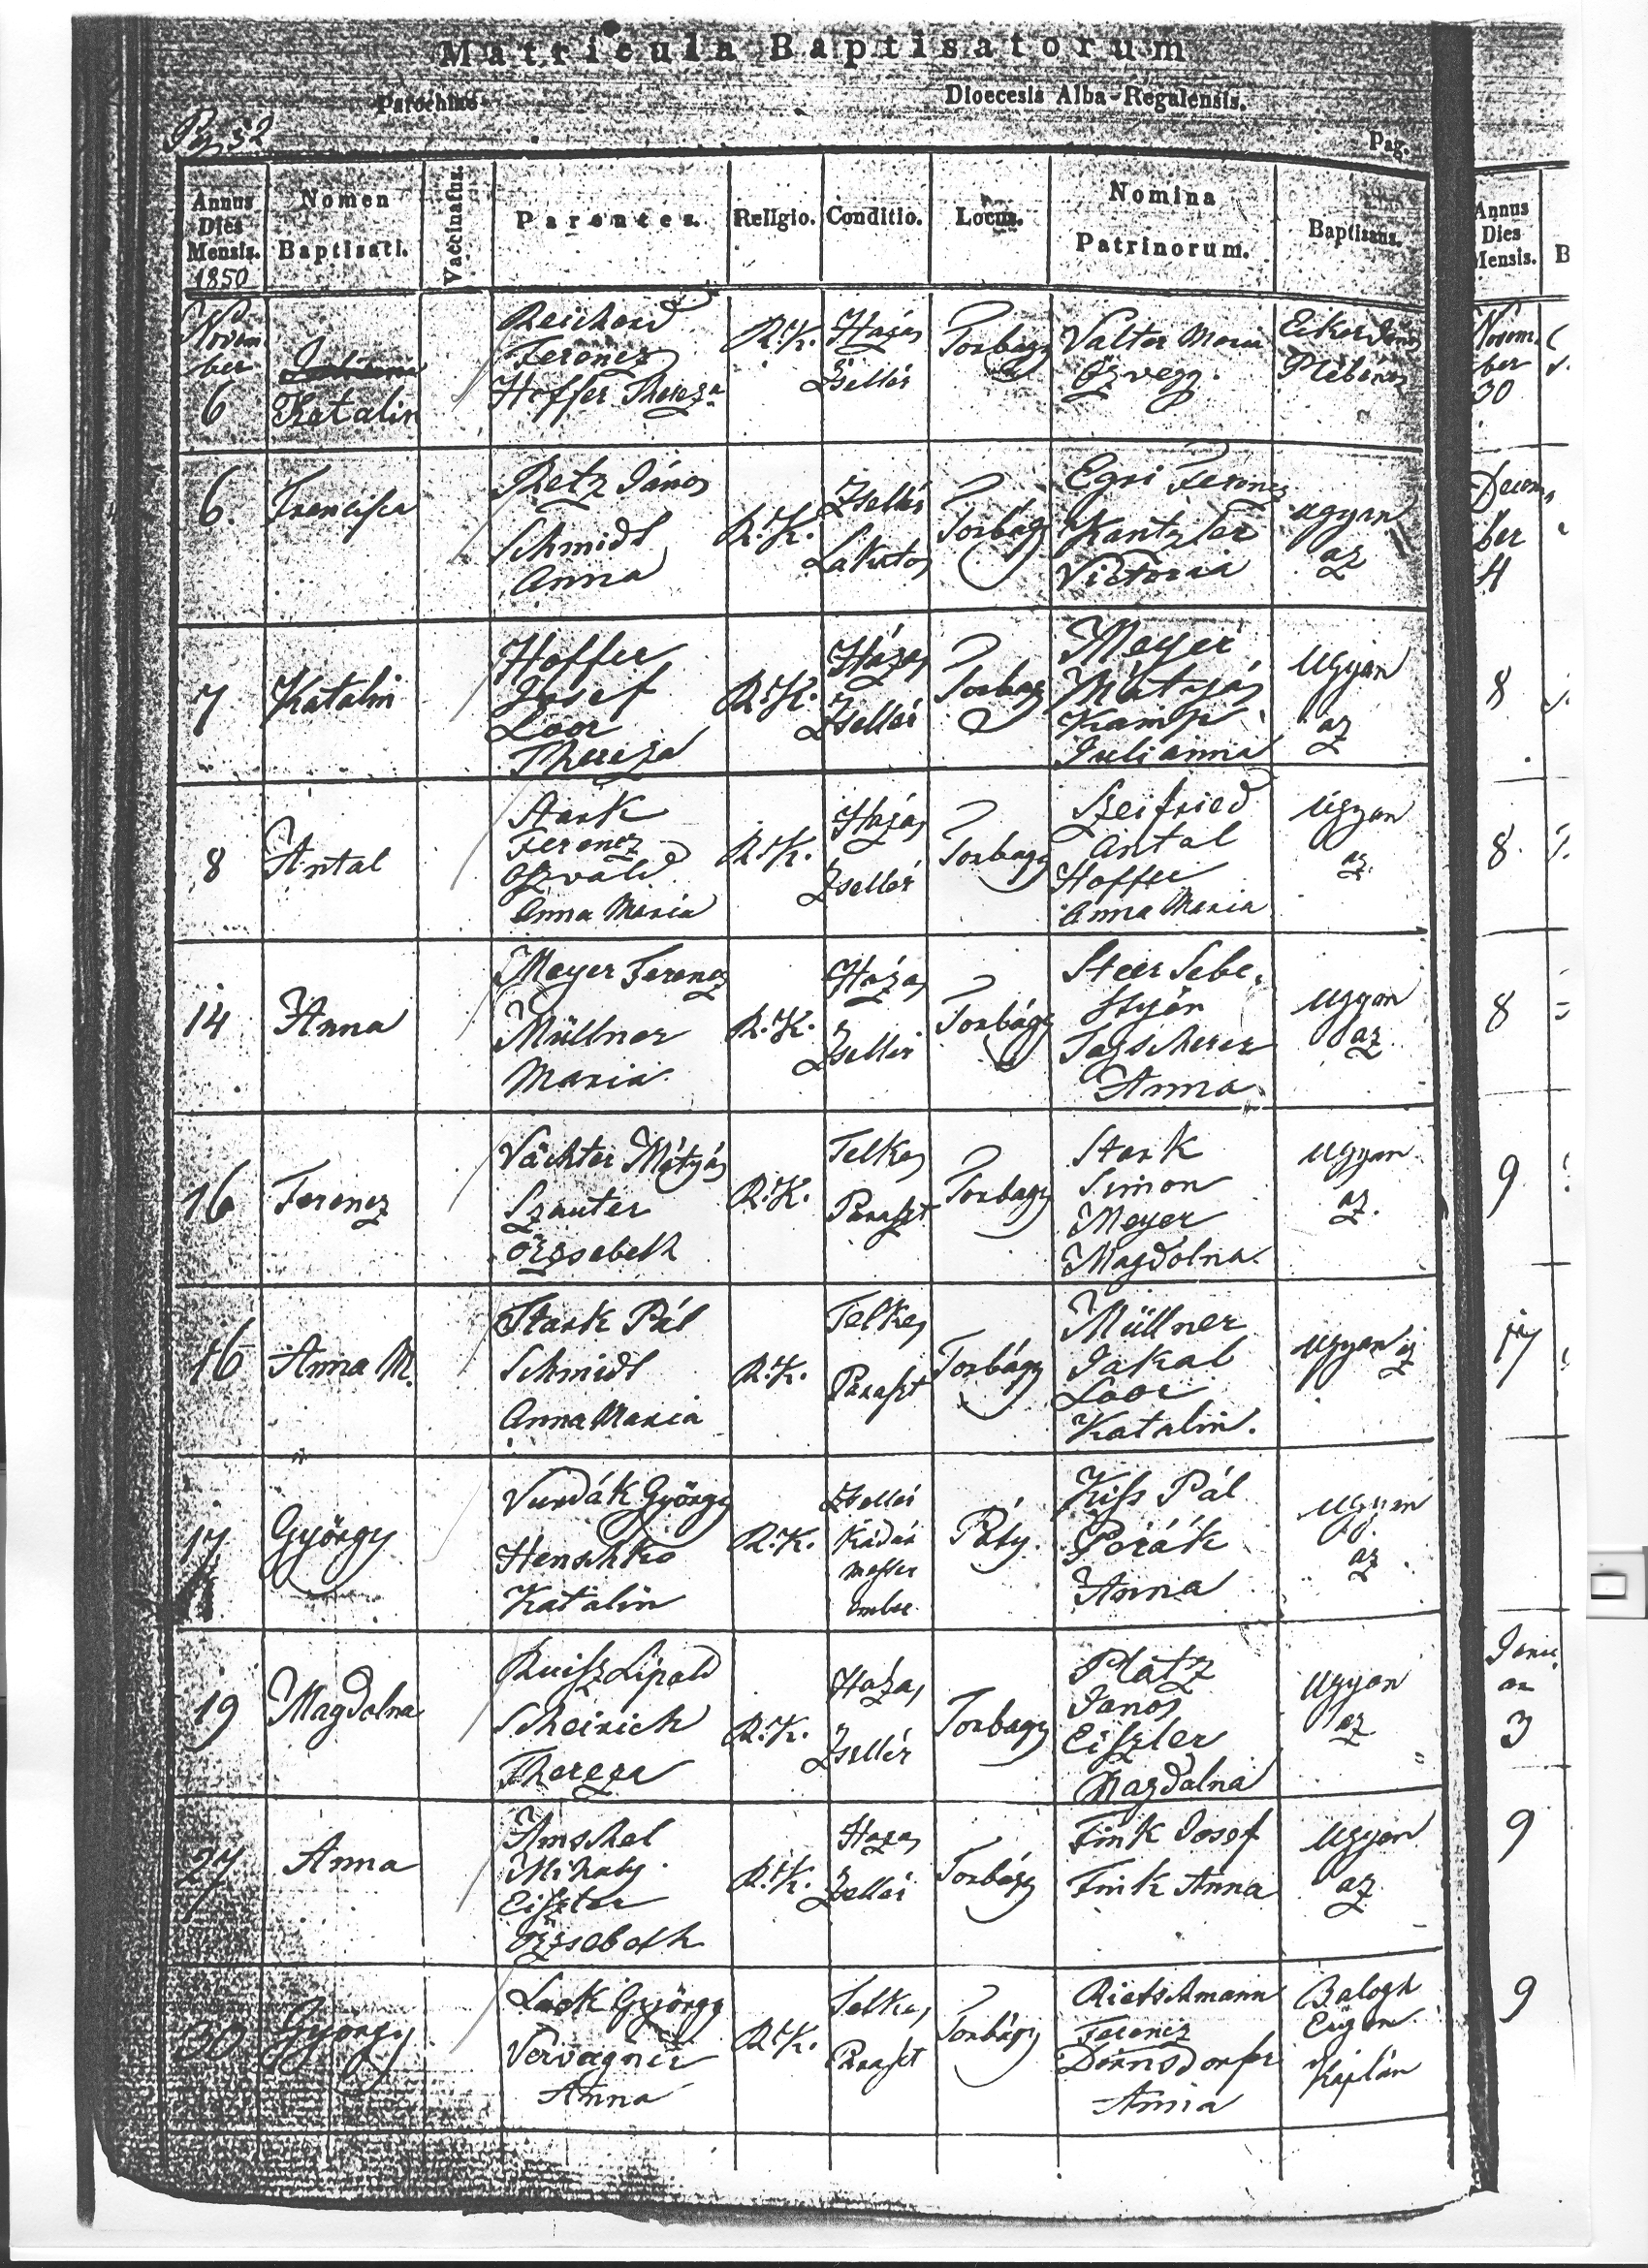 Matricula Baptisatorum
Parochiae
Dioecesis Alba-Regalensis.
Pag. 52
Pag.
Annus Dies Mensis. 1850
Nomen Baptisati.
Vaccinatus.
Parentes.
Religio.
Conditio.
Locus.
Nomina Patrinorum.
Baptisans.
Novem
ber
6
Katalin
Ferencz
Hoffer Thereza
R. K.
Házas
Zsellér
Torbágy
Valter Maria
Özvegy.
Plébános
6.
Francisca
Retz János
Schmidt
Anna
R. K.
Zsellér
Lakatos
Torbágy
Egri Ferencz
Kantzler
Victoria
ugyan
az
7
Katalin
Hoffer
Josef
Loor
Thereza
R. K.
Házas
Zsellér
Torbagy
Meyer
Mátyás
Kampf
Julianna
ugyan
az
8
Antal
Stark
Ferencz
Oszvald
Anna Maria
R. K.
Házas
Zsellér
Torbagy
Szeifried
Antal
Hoffer
Anna Maria
ugyan
az
14
Anna
Meyer Ferencz
Müllner
Maria
R. K.
Házas
Zsellér
Torbágy
Steer Sebe-
styén
Anna
ugyan
az
16
Ferencz
Vächter Mátyás
Szauter
Örzsebeth
R. K.
Telkes
Paraszt
Torbagy
Stark
Simon
Meyer
Magdolna.
ugyan
az.
16
Anna M.
Stark Pál
Schmidt
Anna Maria
R. K.
Telkes
Paraszt
Torbágy
Müllner
Jakab
Loor
Katalin.
ugyan az
17
György
Vurdák György
Henschko
Katalin
R. K.
Zsellér
Kádár
mester
ember
Páty.
Kiss Pál
Anna
ugyan
az
19
Magdolna
Ruisz Lipold
Scheirich
Thereza
R. K.
Házas
Zsellér
Torbagy
Platz
Janos
Eiszler
Magdalna
ugyan
az
27
Anna
Amschel
Mihaly
Eiszler
Örzsebeth
R. K.
Hazas
Zsellér
Torbágy
Fink Josef
Fink Anna
ugyan
az
30
György
Lack György
Anna
R. K.
Telkes
Paraszt
Torbágy
Rietschmann
Ferencz
Dörnsdorfer
Anna
Balogh
Káplán
Annus
Dies
Mensis.
B
Novem
ber
30
Decem
ber
4
8
8
8
9
17
Janu
ar
3
9
9